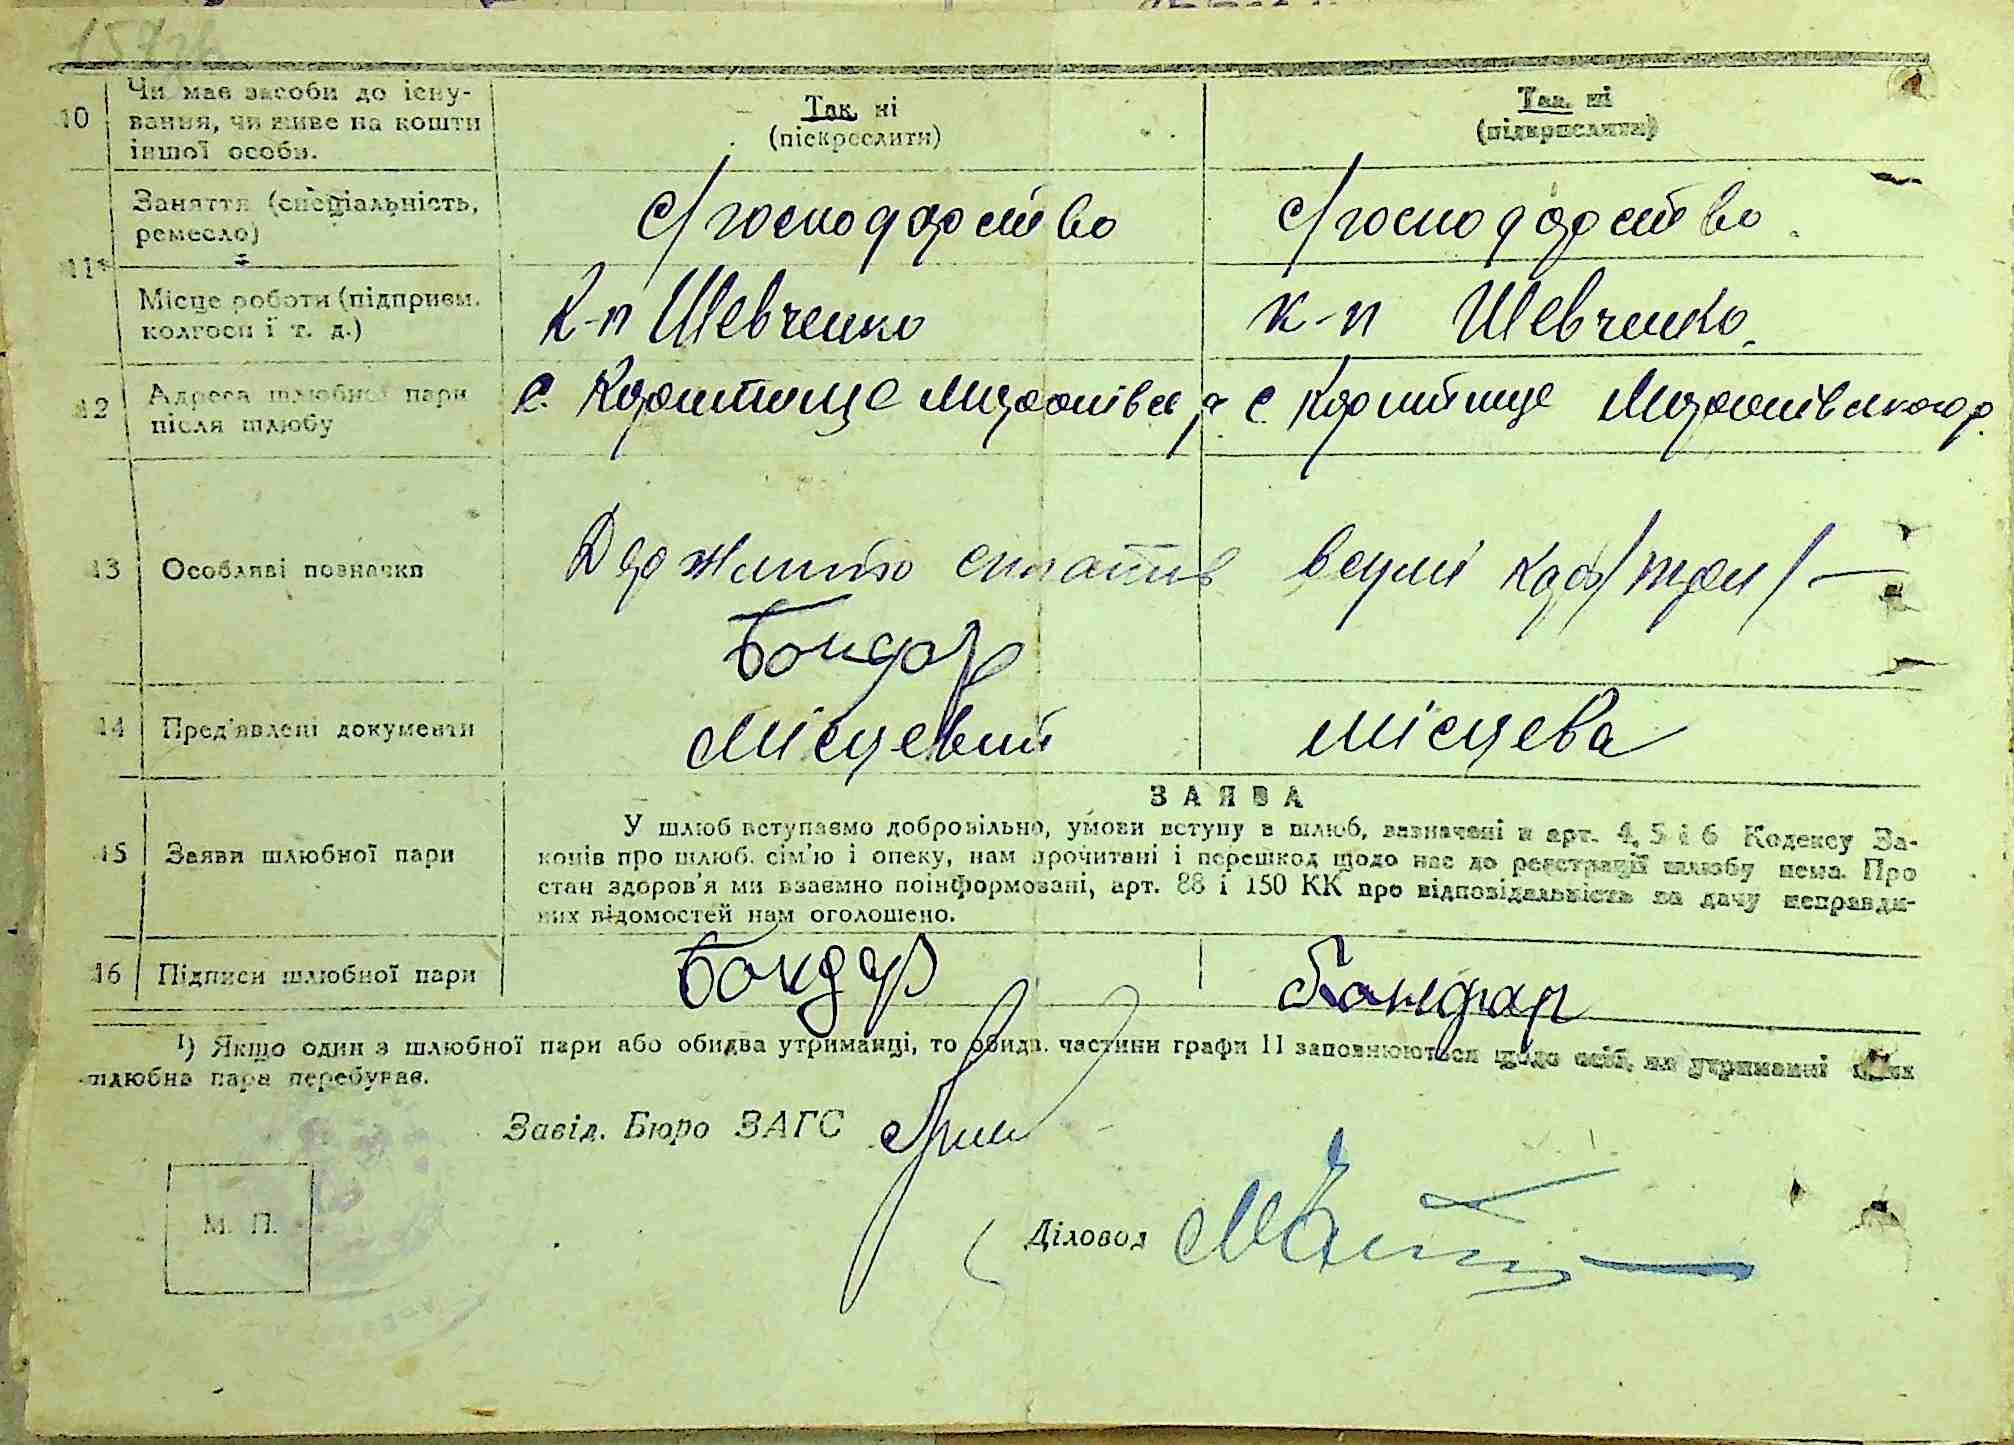 10 Чи має засоби до існу-
вання, чи живе на кошти
іншої особи.
Так, ні
(піскреслити)
Так, ні
(підкреслити)
11¹ Заняття (спеціальність,
ремесло)
с/господарство
с/господарство
Місце роботи (підприєм.
колгосп і т. д.)
К-п Шевченко
к-п Шевченко
12 Адреса шлюбної пари
після шлюбу
с. Карапище Миронівськ р.
с Карапище Миронівського р.
13 Особливі позначки
Держмито сплатив
Бондар
14 Пред'явлені документи
Місцевий
місцева
ЗАЯВА
15 Заяви шлюбної пари
У шлюб вступаємо добровільно, умови вступу в шлюб, зазначені в арт. 4, 5 і 6 Кодексу За-
конів про шлюб, сім'ю і опеку, нам прочитані і перешкод щодо нас до реєстрації шлюбу нема. Про
стан здоров'я ми взаємно поінформовані, арт. 88 і 150 КК про відповідальність за дачу неправди-
них відомостей нам оголошено.
16 Підписи шлюбної пари
Бондар
Бондар
¹) Якщо один з шлюбної пари або обидва утриманці, то обидв. частини графи 11 заповнюються щодо осіб, на утриманні яких
шлюбна пара перебуває.
Завід. Бюро ЗАГС
М. П.
Діловод